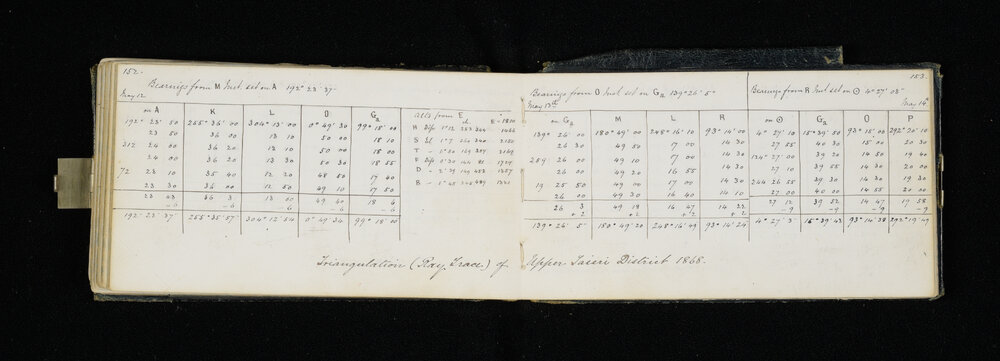 152.
Bearings from M Inst. set on A 192° 23' 37"
May 12
on A K L O Ga
192° 23 50 255° 36' 00 304° 13' 00 0° 49' 30 99° 18' 00
23 50 36 00 13 10 50 00 18 10
312 24 00 36 20 13 10 50 00 18 00
24 00 36 20 13 30 50 30 18 55
72 23 10 35 40 12 20 48 50 17 40
23 30 36 00 12 50 49 10 17 50
23 43 36 3 13 00 49 40 18 6
-6 -6 -6 -6 -6
192° 23' 37" 255° 35' 57" 304° 12' 54 0° 49' 34 99° 18' 00
Alts from E
153.
Bearings from O Inst. set on Ga 139° 26' 5"
May 13th
on Ga M L R
139° 26 00 180° 49' 00 248° 16' 10 93° 14' 00
26 30 49 50 17 00 14 30
259 26 00 49 10 17 00 14 30
26 00 49 20 16 55 14 30
19 25 50 49 00 17 00 14 30
26 00 49 30 16 40 14 10
26 3 49 18 16 47 14 22
+2 +2 +2 +2
139° 26' 5" 180° 49' 20 248° 16' 49 93° 14' 24
Bearings from R Inst. set on O 4° 27' 03"
May 14th
on O Ga O P
4° 27' 10 15° 39' 50 93° 15' 00 292° 20' 10
27 55 40 30 15 00 20 30
124° 27 00 39 20 14 50 19 40
27 10 39 50 14 30 20 00
244 26 55 39 30 14 30 19 30
27 00 40 00 14 55 20 00
27 12 39 52 14 47 19 58
-9 -9 -9 -9
4° 27' 3" 15° 39' 43 93° 14' 38 292° 19' 49
Triangulation (Ray Trace) of Upper Taieri District 1868.